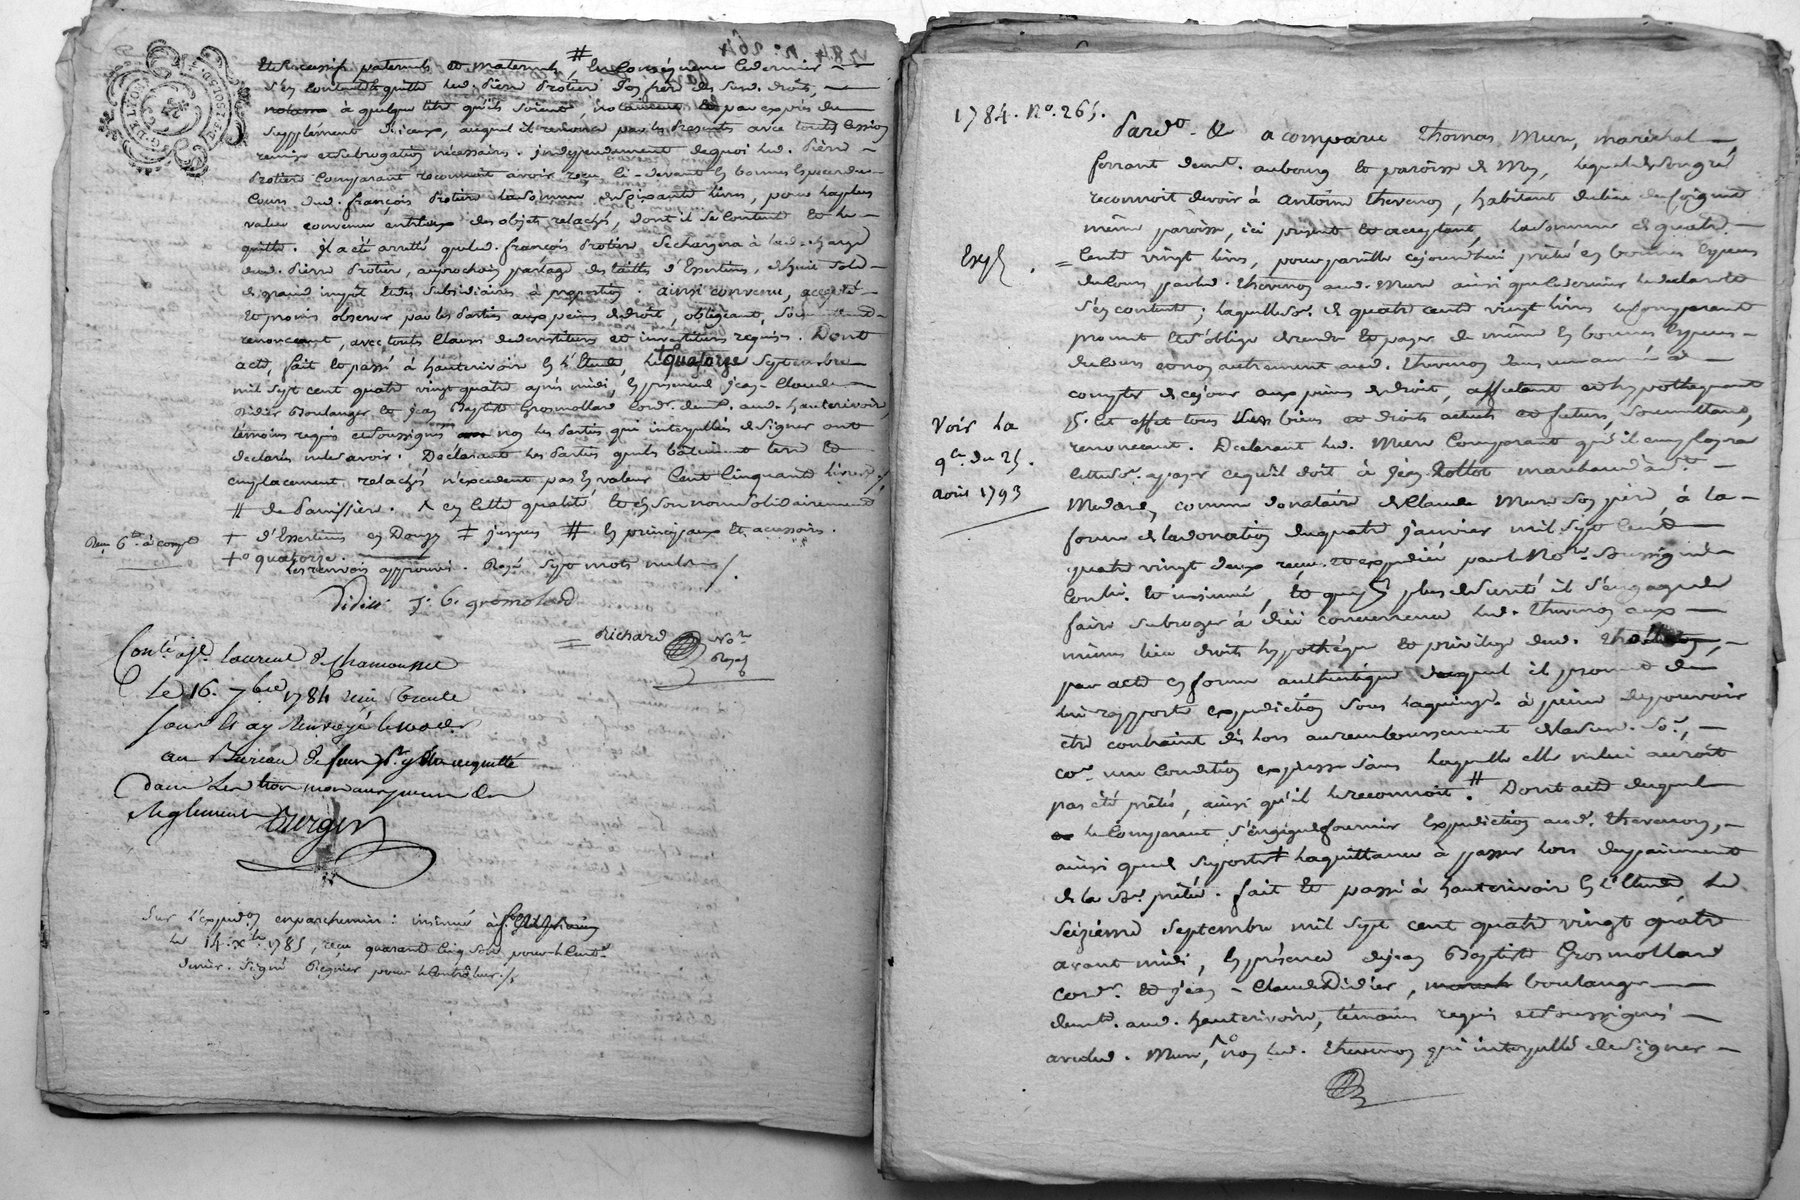 et successifs paternels et maternels, # en conséquence ce dernier
s'en contente quitte led. Pierre Protier son frère des susd. droits,
à quelque titre qu'ils soient, et par exprès du
supplément d'iceux, auquel il renonce par les présentes avec toutes cession
remise et subrogation nécessaires. indépendament de quoi led. Pierre
Protier comparant reconnoit avoir reçu ci-devant en bonnes espèces du
cours dud. françois Protier la somme de soixante livres, pour la plus
value convenue entr'eux des objets relachés, dont il se contente et le
quitte. il a été arretté que led. françois Protier se chargera à la décharge
dud. Pierre Protier, au prochain partage des tailles d'Essertines, de huit sols
de grand impôt et des subsidiaires à proportion. ainsi convenu, accepté
et promis observer par les parties aux peines de droit, obligeant, soum.
renonceant, avec toutes clauses de devestitures et investitures requises. Dont
acte, fait et passé à hauterivoire en l'Etude, le quatorze septembre
mil sept cent quatre vingt quatre après midi, en présence de jean-Claude
Didier Boulanger et jean Baptiste Grosmollard cord. demt. aud. hauterivoire,
témoins requis et soussignés non les parties qui interpellées de signer ont
déclarés ne le savoir. Déclarant les parties que les bâtiment terre et
emplacement relachés n'excedent pas en valeur cent cinquante livres./.
# de Panissière. ^ en cette qualité et en son nom solidairement
+ d'Essertines en Donzy ‡ jusques # en principaux et accessoires.
+° quatorze.
Les renvois approuvés. Rayé sept mots nuls./.
Reçu 6tt à compte
Didier j. b. gromolard
Richard Nore Royal
Conte à St. Laurent de Chamousset
le 16. 7bre 1784 reçu trente
sous et ay renvoyé
au Bureau de
dans les tems
Reglement Durger
Sur l'expedon en parchemin: insinué à
le 14. Xbre 1785, reçu quarante cinq sols pour le cent.e
denier. signé Regnier pour le Contrôleur./.
1784. No. 265.
Pardt. &a a comparu Thomas Mure, maréchal
ferrant demt. au bourg et paroisse de Mey, lequel de son gré
reconnoit devoir à Antoine Thevenon, habitant du lieu
même paroisse, ici présent et acceptant, la somme de quatre
Exp.
cents vingt livres, pour pareille cejourd'hui prêtée en bonnes espèces
du cours par led. Thevenon aud. Mure ainsi que ce dernier le declare et
s'en contente; laquelle so. de quatre cents vingt livres le comparant
promet et s'oblige de rendre et payer de même en bonnes espèces
du cours et non autrement aud. Thevenon dans une année à
compter de ce jour aux peines de droit, affectant et hypothéquant
p. cet effet tous ses biens et droits actuels et futurs, soumettant,
renonceant. Déclarant led. Mure comparant qu'il employera
Voir la
qce. du 25.
aout 1793
cette so. à payer ce qu'il doit à jean marchand
comme donataire de Claude Mure son père, à la
forme de la donation du quatre janvier mil sept cent
quatre vingt deux reçue et expediée par le Nore. soussigné
contr. et insinuée, et que p. plus de sureté il s'engage de
faire subroger à due concurrence led. Thevenon aux
mêmes lieu droits hypothéque et privilege dud.
par acte en forme authentique duquel il promet de
lui rapporter expedition sous la quinz.e à peine de pouvoir
etre contraint dès lors au remboursement de lad. so.,
coe. une condition expresse sans laquelle elle ne lui auroit
pas été prêtée, ainsi qu'il le reconnoit. # Dont acte duquel
le comparant s'engage de fournir expedition aud. Thevenon,
ainsi que de suporter la quittance à passer lors du paiement
de la so. prêtée. fait et passé à hauterivoire en l'Etude le
seizième septembre mil sept cent quatre vingt quatre
avant midi, en présence de jean Baptiste Grosmollard
cord. et jean-Claude Didier, boulanger
demt. aud. hauterivoire, témoins requis et soussignés
avec led. Mure, ^° non led. Thevenon qui interpellé de signer